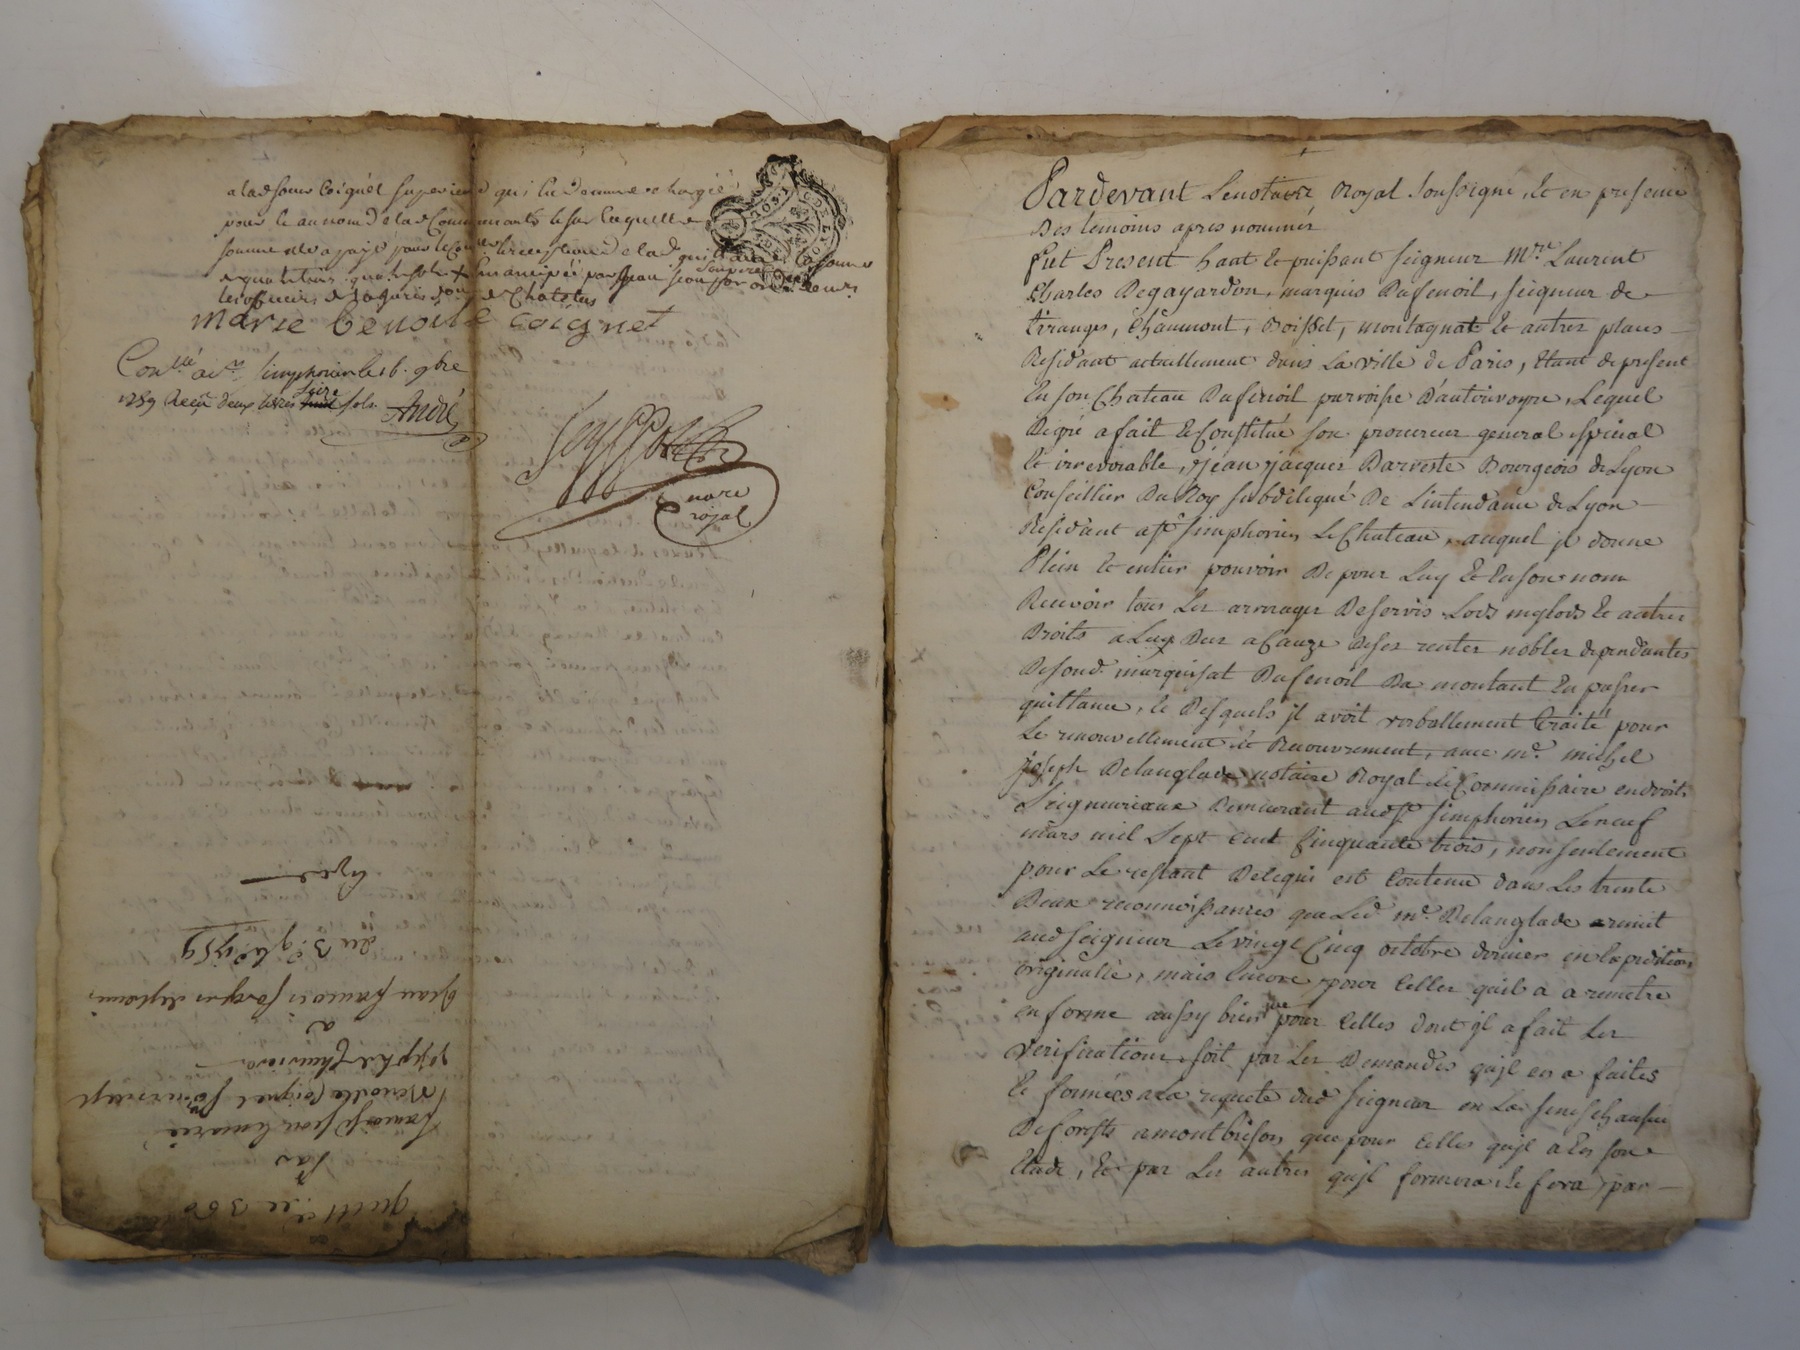 alad soeur Coignet superieure qui lui demeure chargée
pour le au nom de lad Communauté de sur laquelle
somme
les offices de Chatelus
marie benoite coignet
Con.llé a St. simphorien le 16. 9bre
1759 Reçu deux livres seize sols André
nore
royal
quitt.ce de 300
par
françois
Benoitte Coignet
joseph
a
jean francois jacques
du 3e. 9bre 1759
Pardevant Lenotaire Royal Soussigné, Et en presence
Des temoins apres nommés
fut Present haut Et puissant seigneur Mre. Laurent
Charles Degayardon, marquis Dufenoil, seigneur de
tiranges, Chaumont, Boisset, montagnat Et autres places
Residant actuellement dans La ville de Paris, Etant de present
En son Chateau Dufenoil parroisse D'ste, Lequel
Degré a fait Et Constitué son procureur general special
Et irrevocable, jean jacques Barveste Bourgeois de Lyon
Conseillier Du Roy subdelegué De L'intendance de Lyon
Residant a st. simphorien Le Chateau, auquel jl donne
Plein Et entier pouvoir De pour Luy Et En son nom
Recevoir tous Les arrerages De servis Lods mylods Et autres
Droits a Luy Deus a Cauze De ses rentes nobles dependantes
De sond. marquisat Dufenoil Du montant En passer
quittance, Et Desquels jl avoit verballement traité pour
Le renouvellement Et Recouvrement, avec me. michel
joseph Delanglade notaire Royal et Commissaire en droits
Seigneuriaux Demeurant aud st. simphorien Le neuf
mars mil Sept cent Cinquante trois, non seulement
pour Le restant De ce qui est Contenu dans Les trente
Deux reconnoissances que Led. me. Delanglade remit
aud seigneur Le vingt Cinq octobre dernier en Expedition
originalle, mais Encore pour Celles quil a a remetre
en forme aussy bien que pour Celles dont jl a fait Les
verifications, soit par Les Demandes qu'jl en a faites
Et formées a La requete dud seigneur en La senechaussée
De forests a montbrison que pour Celles qu'jl a En son
Etude, Et par Les autres qu'jl formera Et fera par